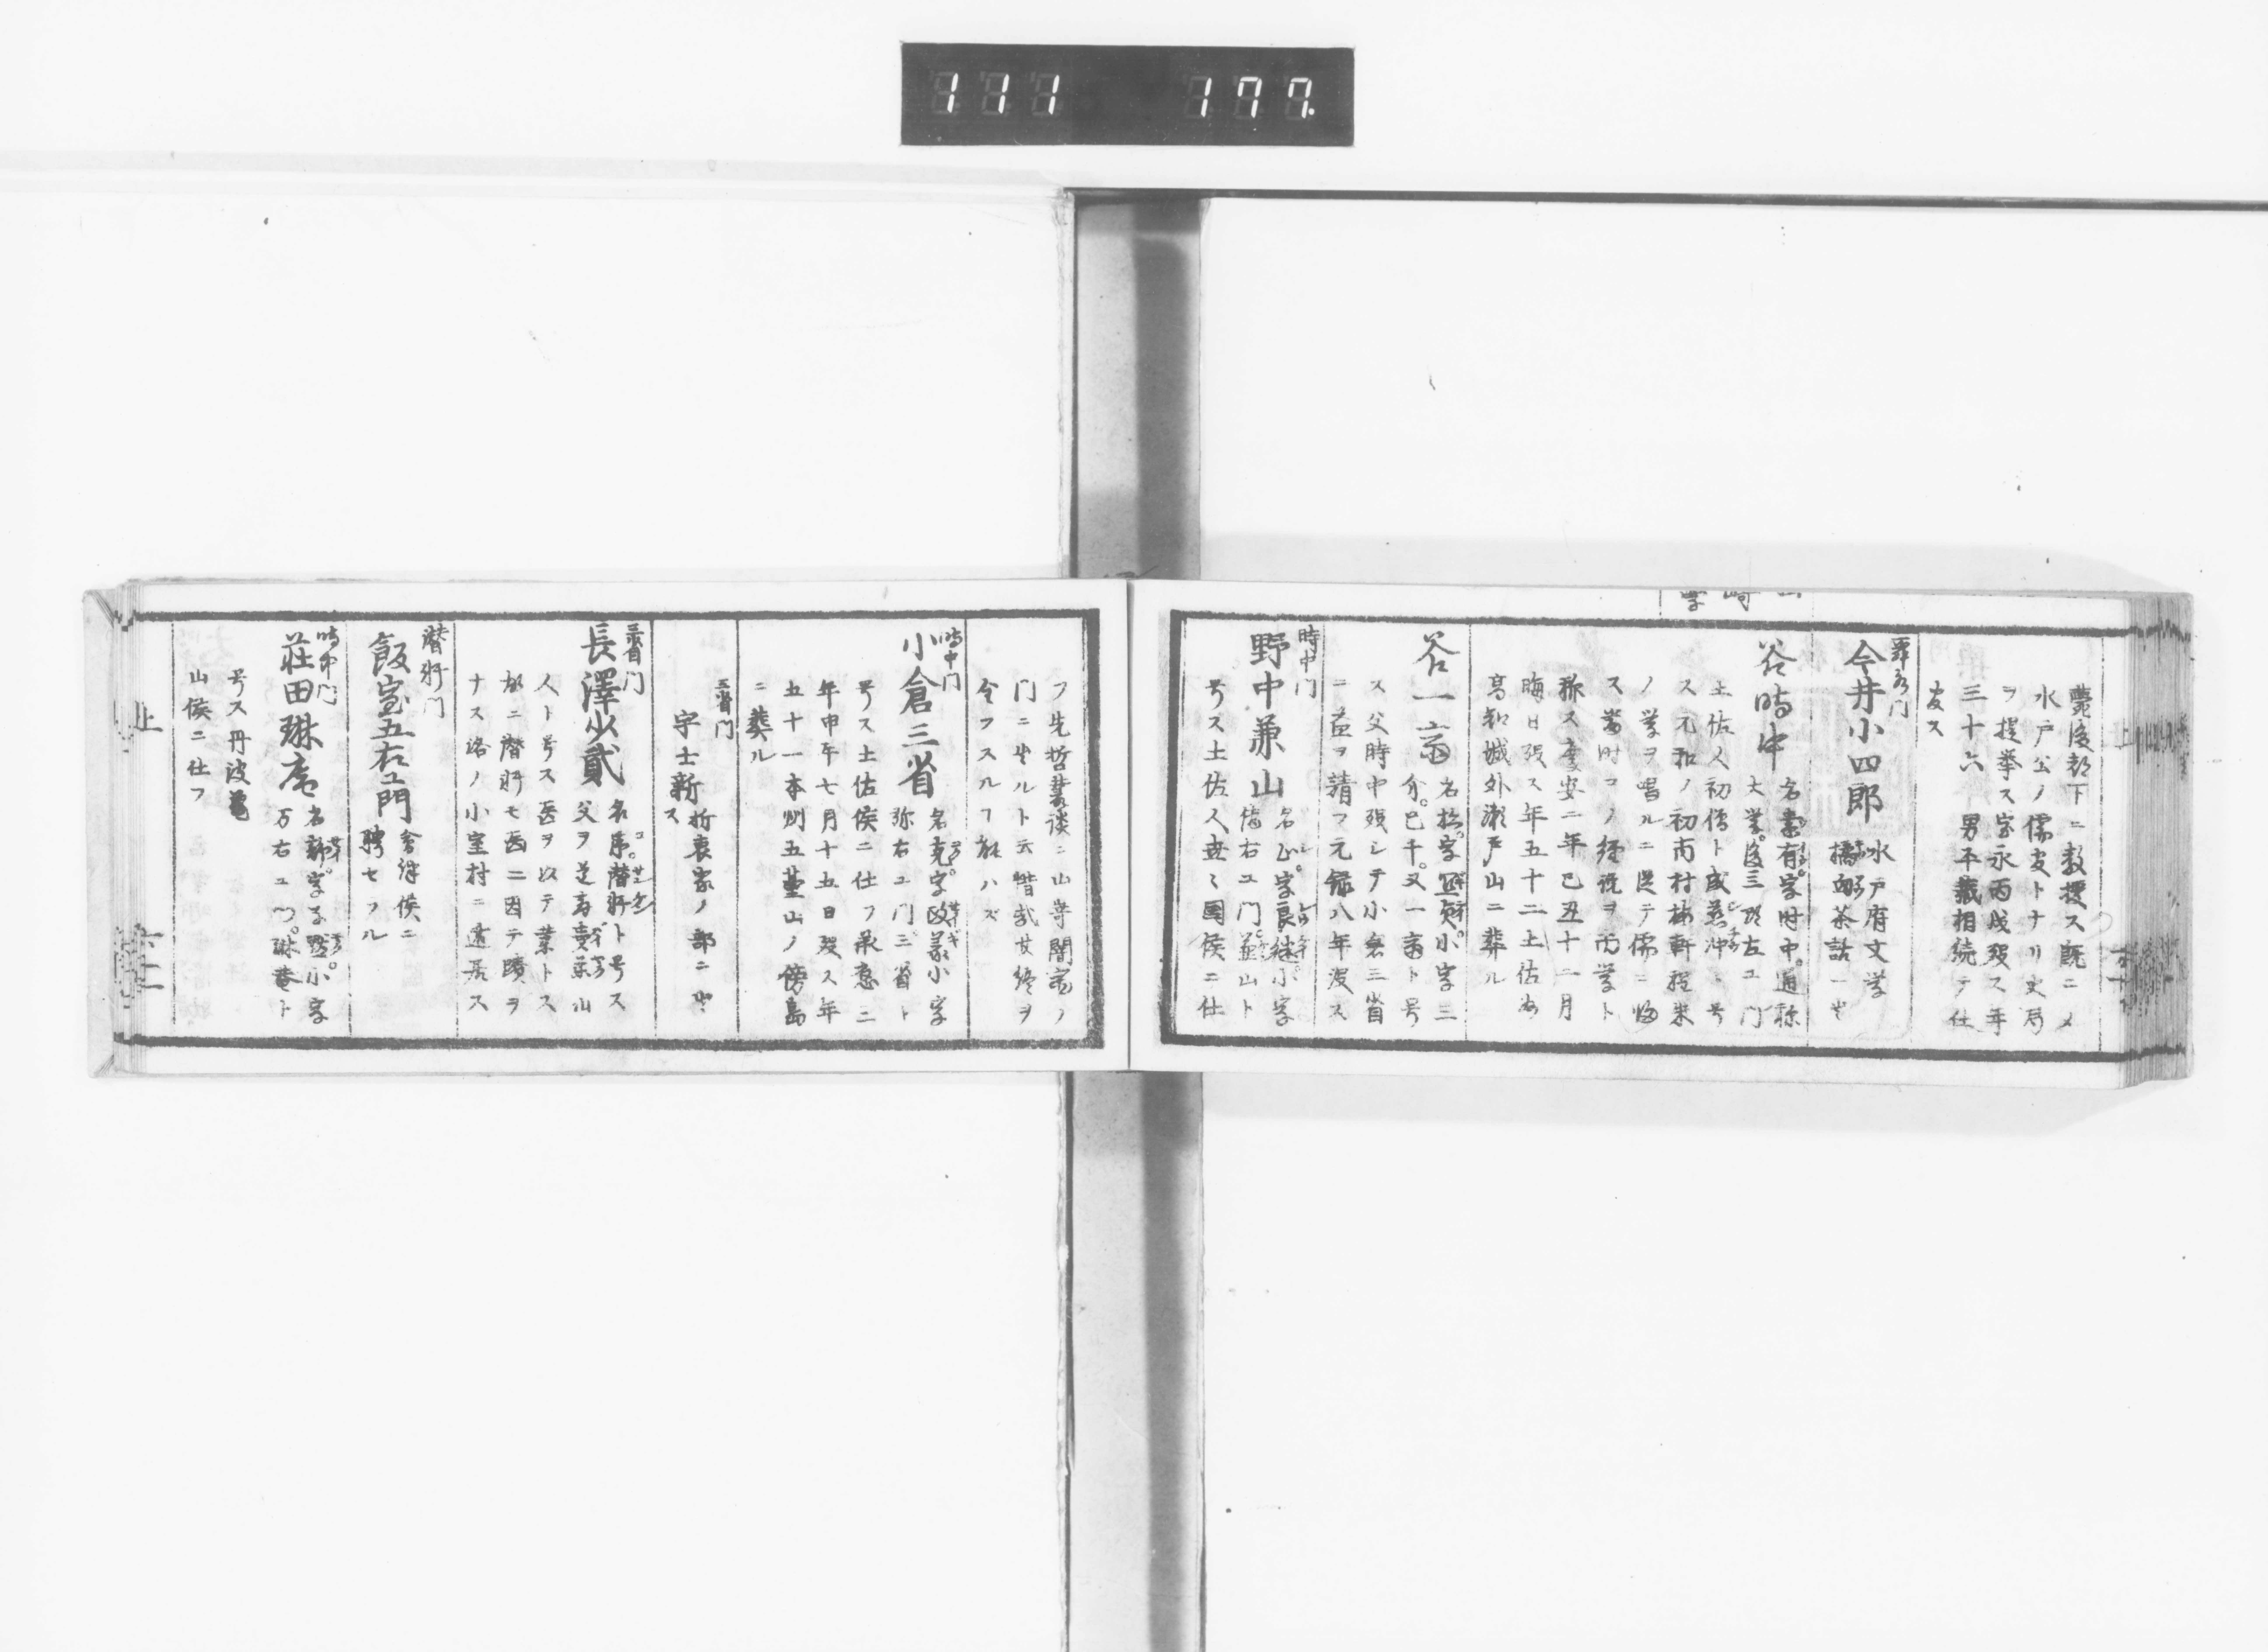 111 177.
蘭後都下ニ教授ス既ニメ
水戸公ノ儒吏トナリ史局
ヲ提挙ス宝永丙戌歿ス年
三十六 男平蔵相続テ仕
官ス
今井小四郎
水戸府文学
橘南茶話ニ出
谷時中
名素有字時中通称
大学後三郎左ヱ門
土佐人初僧ト成慈冲ト号
ス元和ノ初南村梅軒程朱
ノ学ヲ唱ルニ従テ儒ニ帰
ス当時コノ経説ヲ南学ト
称ス慶安二年己丑十二月
晦日歿ス年五十二土佐
高知城外瀬戸山ニ葬ル
谷一斎
名松字宜貞小字三
介己千又一斎ト号
ス父時中歿シテ小倉三省
ニ益ヲ請フ元禄八年歿ス
時中门
野中兼山
名止字良継小字
伝右ヱ门兼山ト
号ス土佐人世々国侯ニ仕
フ先哲叢談ニ山崎闇斎ノ
门ニ出ルト云惜哉其終ヲ
令フスルヿ能ハズ
時中门
小倉三省
名克字政義小字
弥右ヱ门三省ト
号ス土佐侯ニ仕フ承応ニ
年申午七月十五日歿ス年
五十一本州五䑓山ノ傍島
ニ葬ル
三省门
宇士新
折衷家ノ部ニ出
ス
三省门
長澤少貳
名
潜軒ト号ス
父ヲ
人ト号ス医ヲ以テ業トス
故ニ潜軒モ医ニ因テ蹟ヲ
ナス洛ノ小室村ニ遷居ス
潜軒门
飯室五右ヱ門
會津侯ニ
聘セラル
時中门
荘田琳庵
名静字子黙小字
万右ヱ门琳菴ト
号ス丹波亀
山侯ニ仕フ
上
六十二